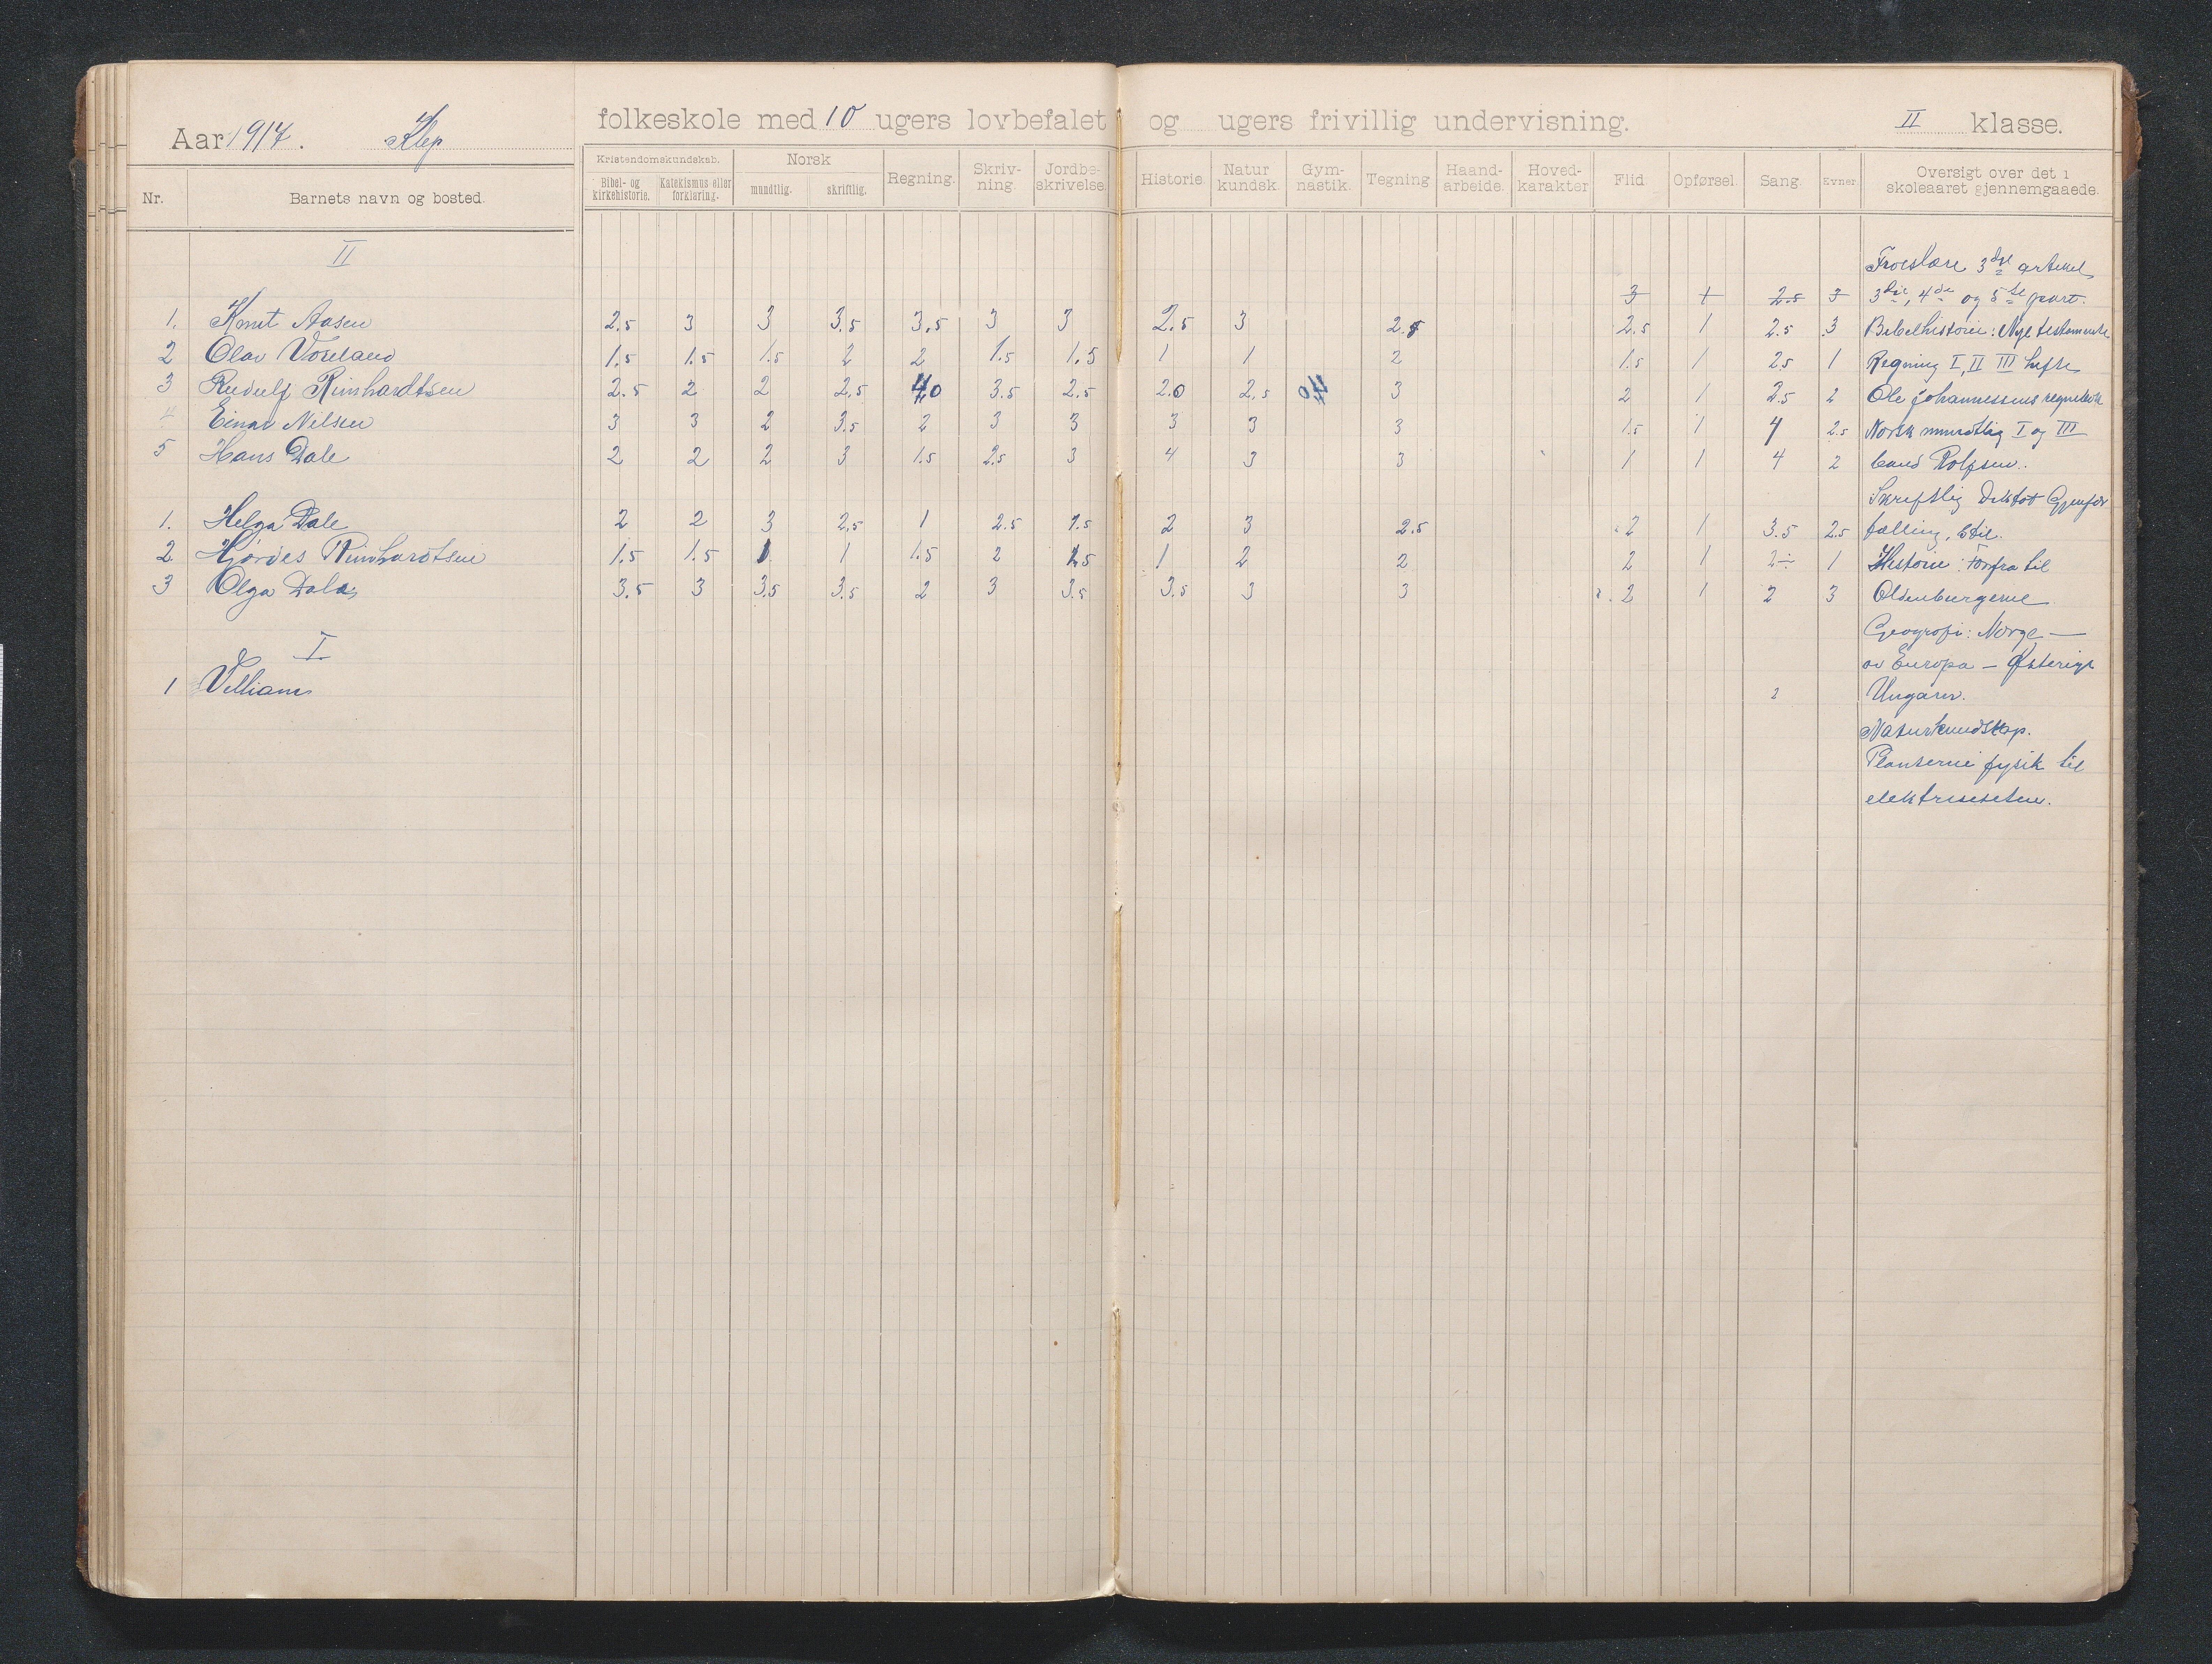 Aar 1917. Klep folkeskole med 10 ugers lovbefalet og ugers frivillig undervisning. II klasse.
Nr. Barnets navn og bosted. Kristendomskundskab. Bibel- og kirkehistorie. Katekismus eller forklaring. Norsk mundtlig. skriftlig. Regning. Skriv-ning. Jordbe-skrivelse. Historie. Natur kundsk. Gym-nastik. Tegning Haand-arbeide. Hoved-karakter Flid Opførsel. Sang. Evner. Oversigt over det i skoleaaret gjennemgaaede.
II
Troeslære 3dje artikel
3 1 2.5 3 3die, 4de og 5te part.
1. Knut Aasen 2.5 3 3 3.5 3.5 3 3 2.5 3 2.5 2.5 1 2.5 3 Bibelhistorie: Nye testamente
2 Olav Voreland 1.5 1.5 1.5 2 2 1.5 1.5 1 1 2 1.5 1 2.5 1 Regning I, II III hefte
3 Rudulf Reinhardtsen 2.5 2 2 2.5 40 3.5 2.5 2.0 2.5 3 2 1 2.5 2 Ole Johannessens regnebok
4 Einar Nilsen 3 3 2 3.5 2 3 3 3 3 3 1.5 1 4 2.5 Norsk mundtlig I og III
5 Hans Dale 2 2 2 3 1.5 2.5 3 4 3 3 1 1 4 2 band Rolfsen.
Skriftlig Diktat Gjenfor
1. Helga Dale 2 2 3 2.5 1 2.5 1.5 2 3 2.5 2 1 3.5 2.5 tælling, Stil.
2 Hjørdes Reinhardtsen 1.5 1.5 1 1 1.5 2 1.5 1 2 2 2 1 2÷ 1 Historie: Forfra til
3 Olga Dale 3.5 3 3.5 3.5 2 3 3.5 3.5 3 3 2 1 2 3 Oldenburgerne
Geografi: Norge —
I
av Europa — Østerige
1 Villiam 2 Ungarn.
Naturkundskap.
Planterne fysik til
elektrisiteten.